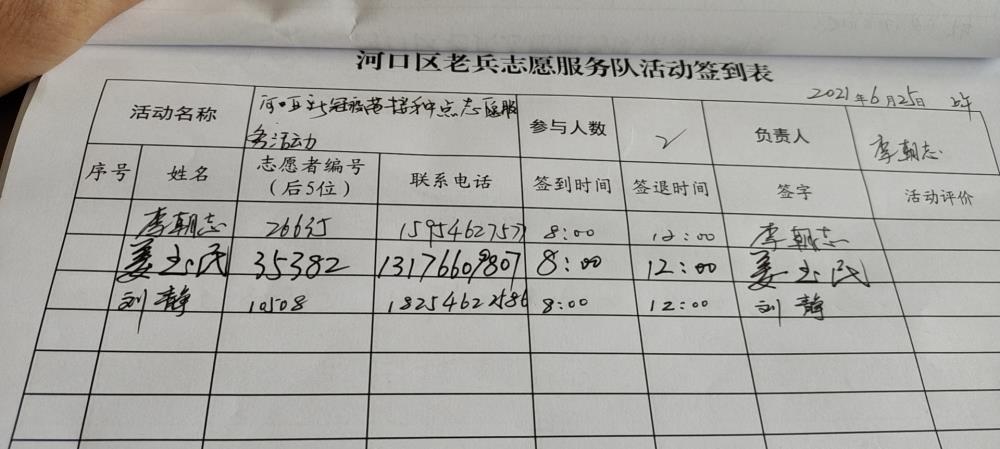 河口区老兵志愿服务队活动签到表
2021年6月25日
活动名称 河口区新冠疫苗接种点志愿服务活动 参与人数 负责人 李朝志
序号 姓名 志愿者编号（后5位） 联系电话 签到时间 签退时间 签字 活动评价
李朝志 26635 15954627577 8:00 12:00 李朝志
姜 民 35382 13176609807 8:00 12:00 姜 民
刘静 10508 18254622586 8:00 12:00 刘静